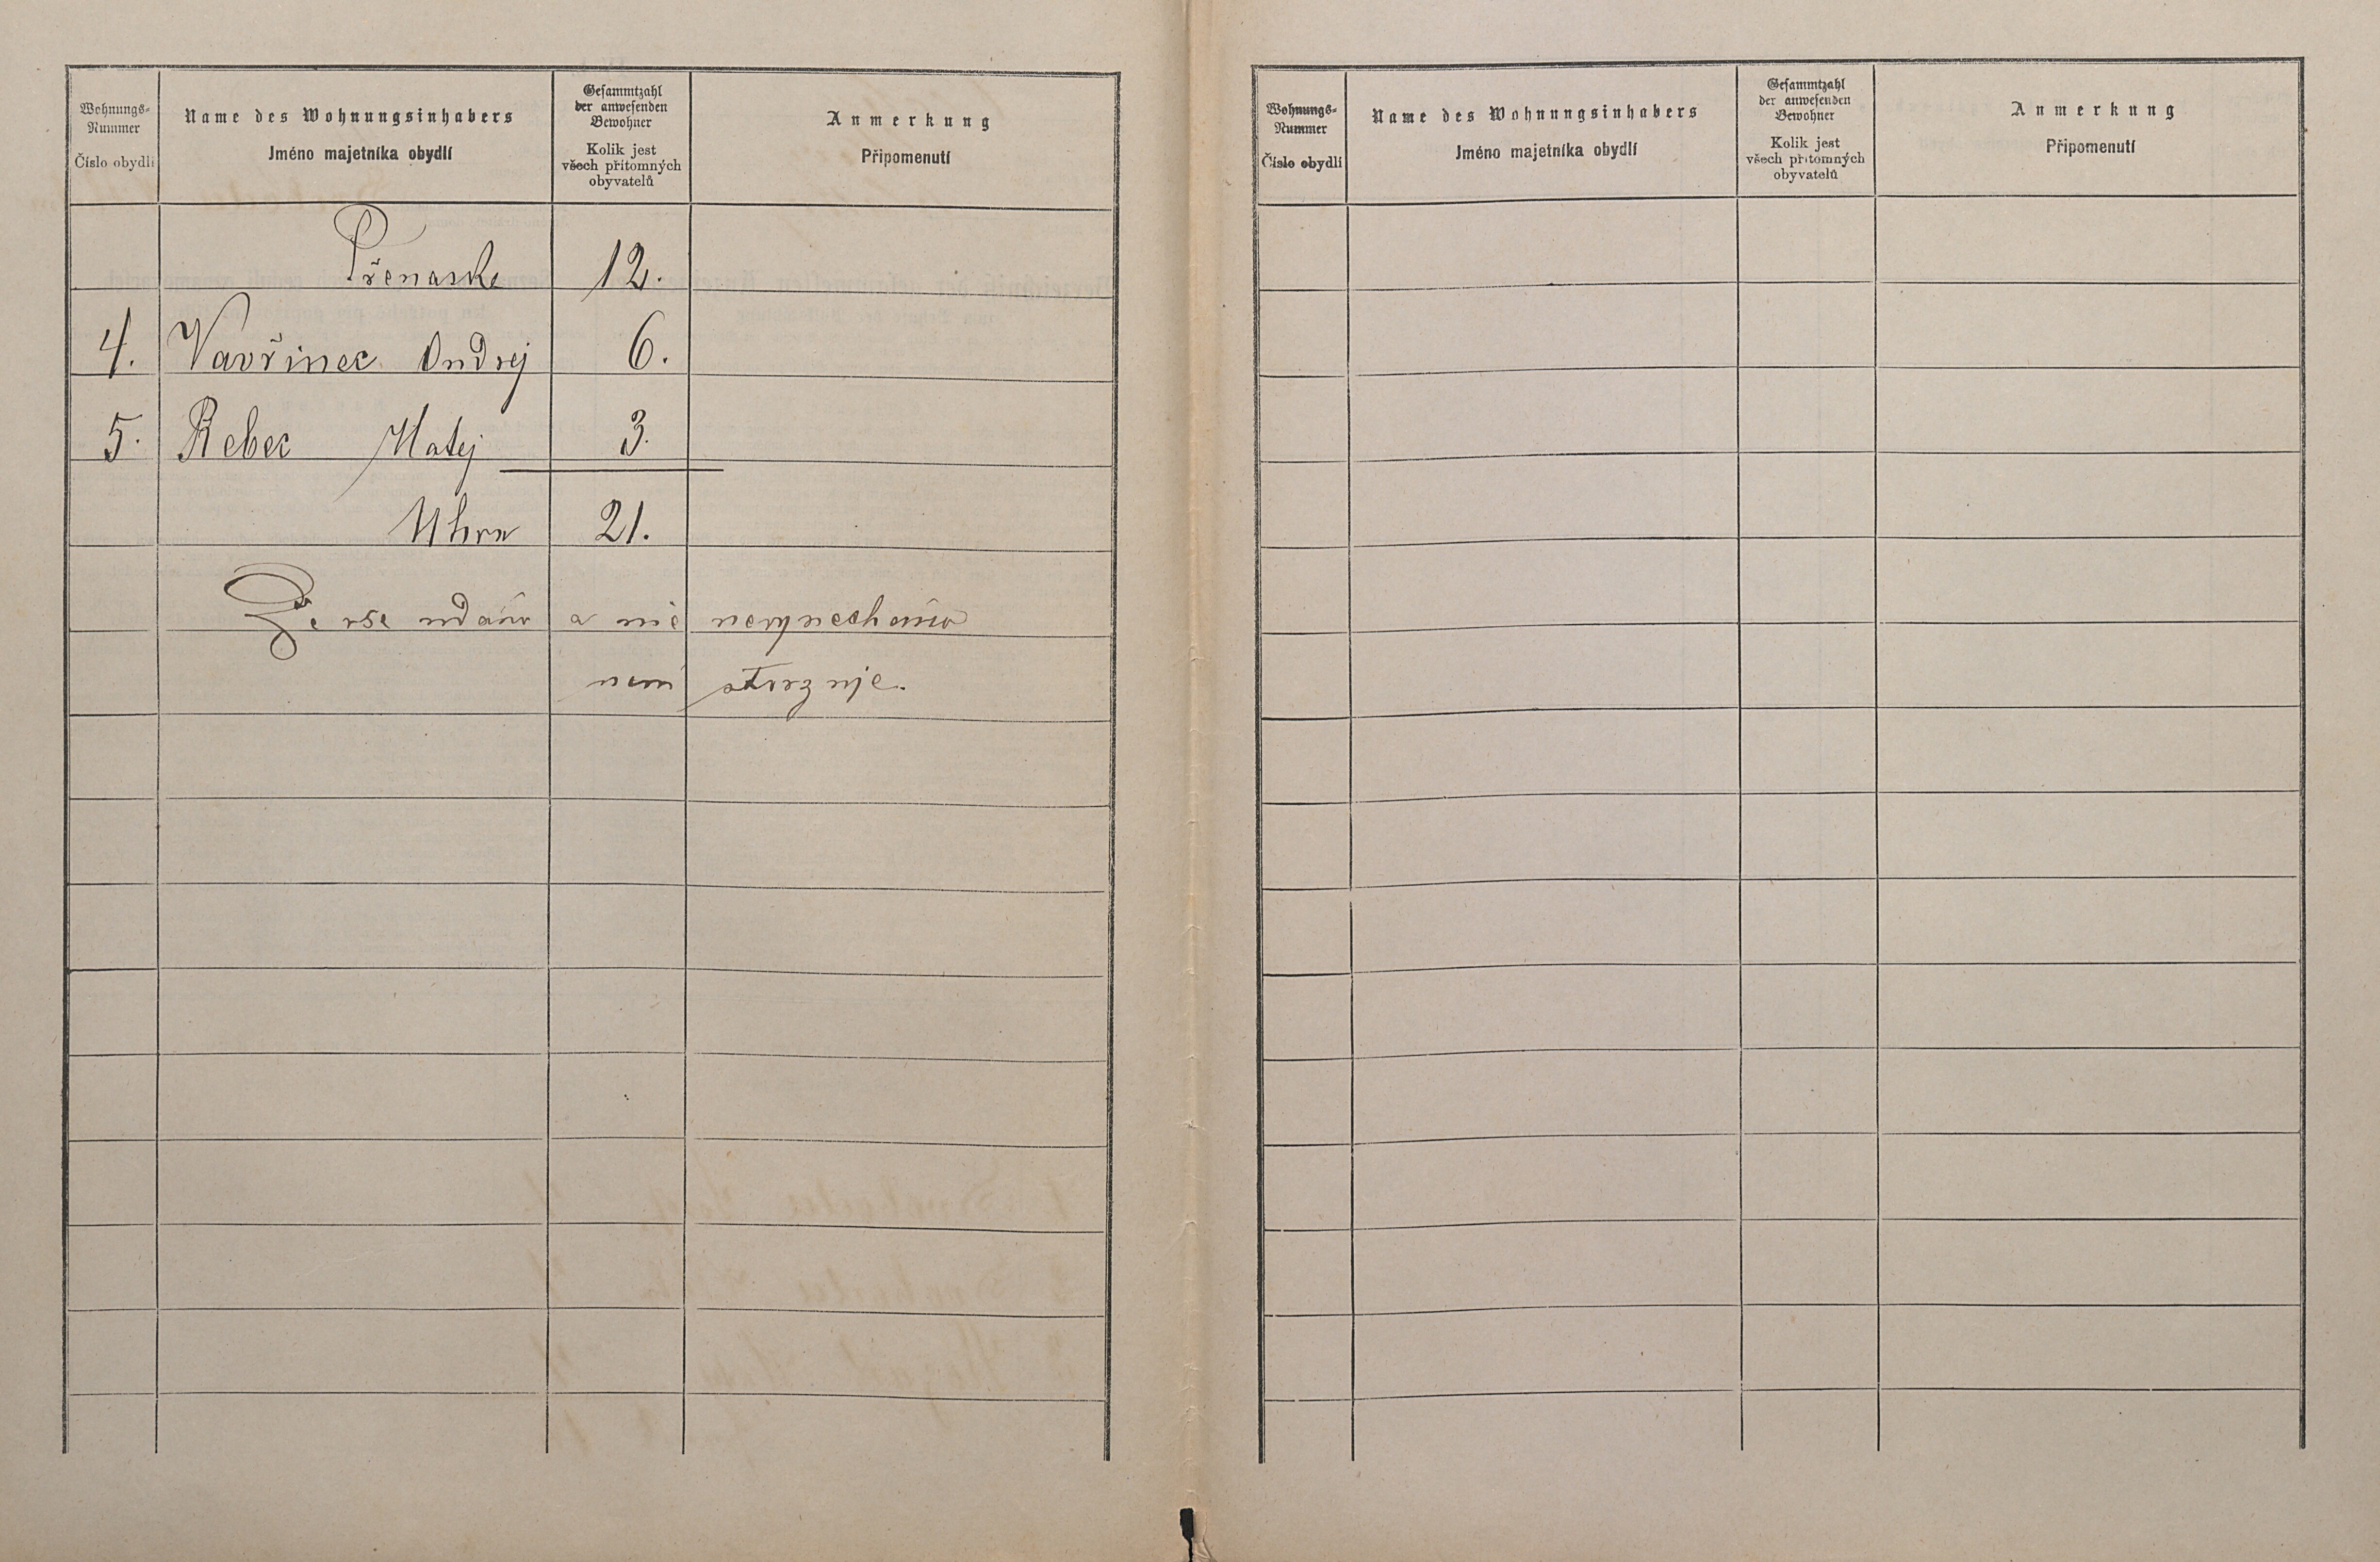 Wohnungs-
Nummer
Číslo obydlí
Name des Wohnungsinhabers
Jméno majetníka obydlí
Gesammtzahl
der anwesenden
Bewohner
Kolik jest
všech přítomných
obyvatelů
Anmerkung
Připomenutí
12.
4. Vavřinec Ondrej 6.
5. Rebec Matej 3.
Uhrn 21.
Že vše udáno a nic nevynecháno
není stvrzuje.
Wohnungs-
Nummer
Číslo obydlí
Name des Wohnungsinhabers
Jméno majetníka obydlí
Gesammtzahl
der anwesenden
Bewohner
Kolik jest
všech přítomných
obyvatelů
Anmerkung
Připomenutí